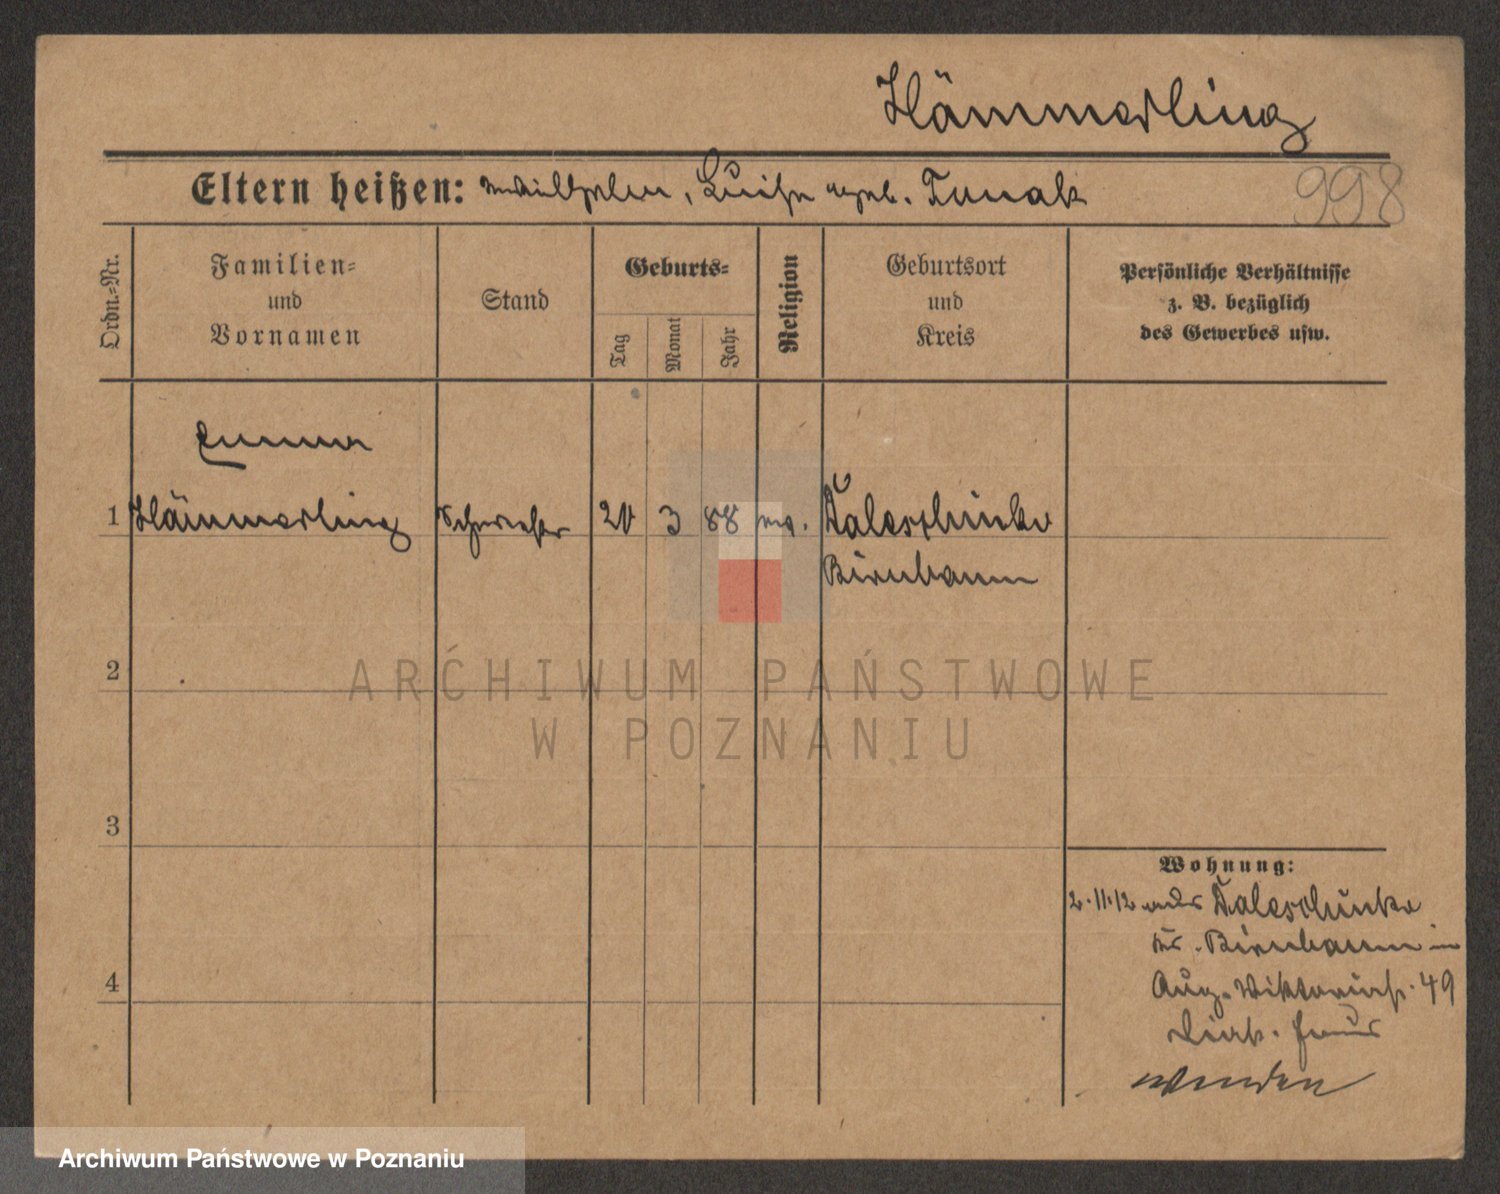 Hämmerling
Eltern heißen: Wilhelm, Luise geb. Tunak
998
Ordn.-Nr.
Familien-
und
Vornamen
Stand
Geburts-
Tag
Monat
Jahr
Religion
Geburtsort
und
Kreis
Persönliche Verhältnisse
z. B. bezüglich
des Gewerbes usw.
Emma
1 Hämmerling Schwester 20 3 88 ev. Kaleschinke
Birnbaum
2
3
4
ARCHIWUM PAŃSTWOWE
W POZNANIU
Wohnung:
2.11.12 aus Kaleschinke
Kr. Birnbaum in
Aug. Viktoriastr. 49
Diak. Haus
wenden
Archiwum Państwowe w Poznaniu